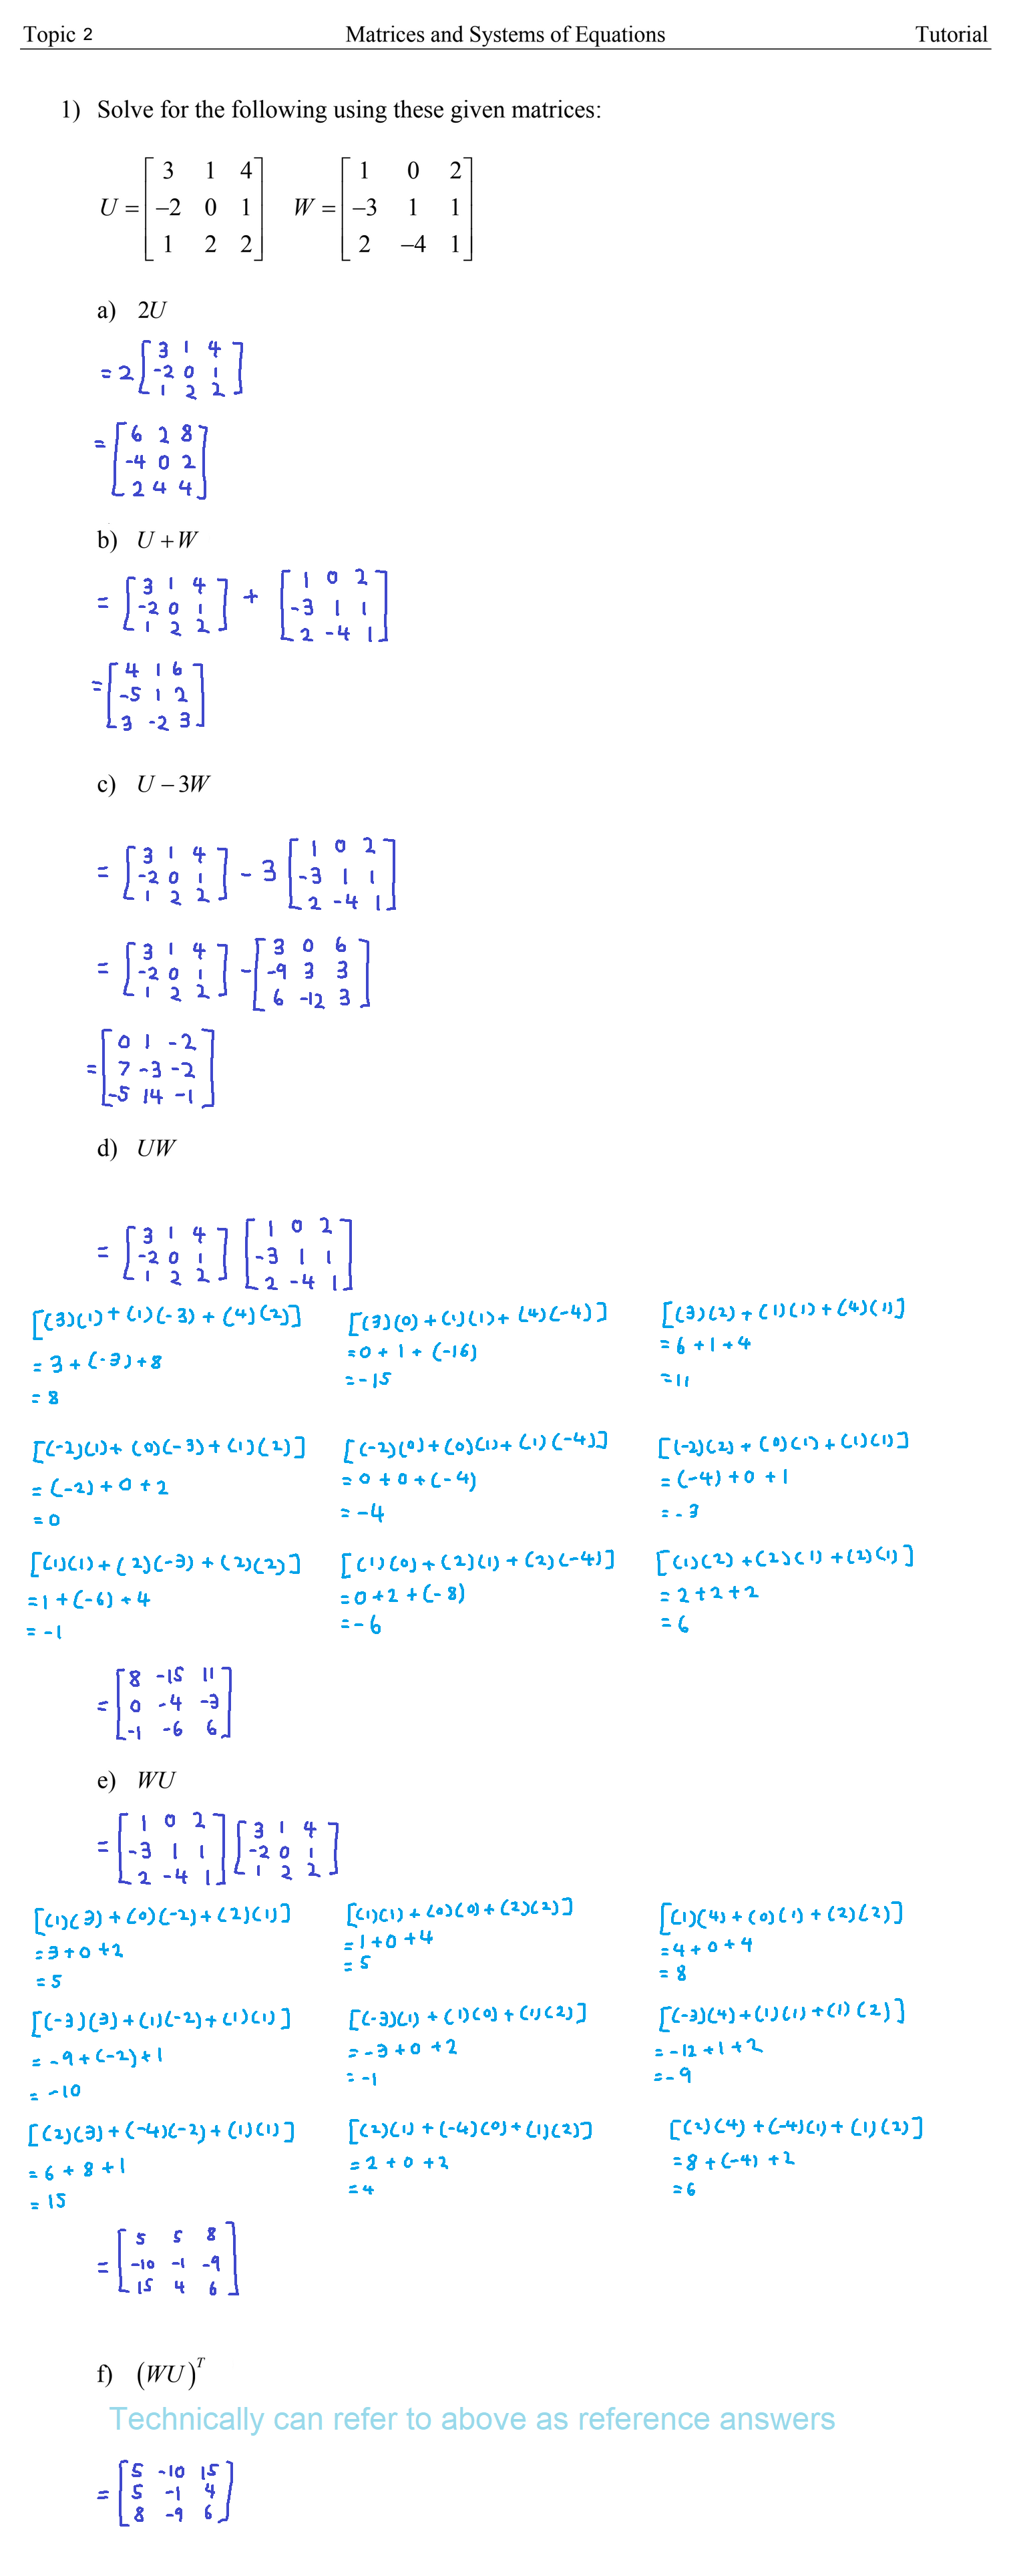 Topic 2 Matrices and Systems of Equations Tutorial
1) Solve for the following using these given matrices:
U = [3 1 4; -2 0 1; 1 2 2] W = [1 0 2; -3 1 1; 2 -4 1]
a) 2U
= 2 [3 1 4; -2 0 1; 1 2 2]
= [6 2 8; -4 0 2; 2 4 4]
b) U + W
= [3 1 4; -2 0 1; 1 2 2] + [1 0 2; -3 1 1; 2 -4 1]
= [4 1 6; -5 1 2; 3 -2 3]
c) U - 3W
= [3 1 4; -2 0 1; 1 2 2] - 3 [1 0 2; -3 1 1; 2 -4 1]
= [3 1 4; -2 0 1; 1 2 2] - [3 0 6; -9 3 3; 6 -12 3]
= [0 1 -2; 7 -3 -2; -5 14 -1]
d) UW
= [3 1 4; -2 0 1; 1 2 2] [1 0 2; -3 1 1; 2 -4 1]
[(3)(1) + (1)(-3) + (4)(2)] [(3)(0) + (1)(1) + (4)(-4)] [(3)(2) + (1)(1) + (4)(1)]
= 3 + (-3) + 8 = 0 + 1 + (-16) = 6 + 1 + 4
= 8 = -15 = 11
[(-2)(1) + (0)(-3) + (1)(2)] [(-2)(0) + (0)(1) + (1)(-4)] [(-2)(2) + (0)(1) + (1)(1)]
= (-2) + 0 + 2 = 0 + 0 + (-4) = (-4) + 0 + 1
= 0 = -4 = -3
[(1)(1) + (2)(-3) + (2)(2)] [(1)(0) + (2)(1) + (2)(-4)] [(1)(2) + (2)(1) + (2)(1)]
= 1 + (-6) + 4 = 0 + 2 + (-8) = 2 + 2 + 2
= -1 = -6 = 6
= [8 -15 11; 0 -4 -3; -1 -6 6]
e) WU
= [1 0 2; -3 1 1; 2 -4 1] [3 1 4; -2 0 1; 1 2 2]
[(1)(3) + (0)(-2) + (2)(1)] [(1)(1) + (0)(0) + (2)(2)] [(1)(4) + (0)(1) + (2)(2)]
= 3 + 0 + 2 = 1 + 0 + 4 = 4 + 0 + 4
= 5 = 5 = 8
[(-3)(3) + (1)(-2) + (1)(1)] [(-3)(1) + (1)(0) + (1)(2)] [(-3)(4) + (1)(1) + (1)(2)]
= -9 + (-2) + 1 = -3 + 0 + 2 = -12 + 1 + 2
= -10 = -1 = -9
[(2)(3) + (-4)(-2) + (1)(1)] [(2)(1) + (-4)(0) + (1)(2)] [(2)(4) + (-4)(1) + (1)(2)]
= 6 + 8 + 1 = 2 + 0 + 2 = 8 + (-4) + 2
= 15 = 4 = 6
= [5 5 8; -10 -1 -9; 15 4 6]
f) (WU)^T
Technically can refer to above as reference answers
= [5 -10 15; 5 -1 4; 8 -9 6]